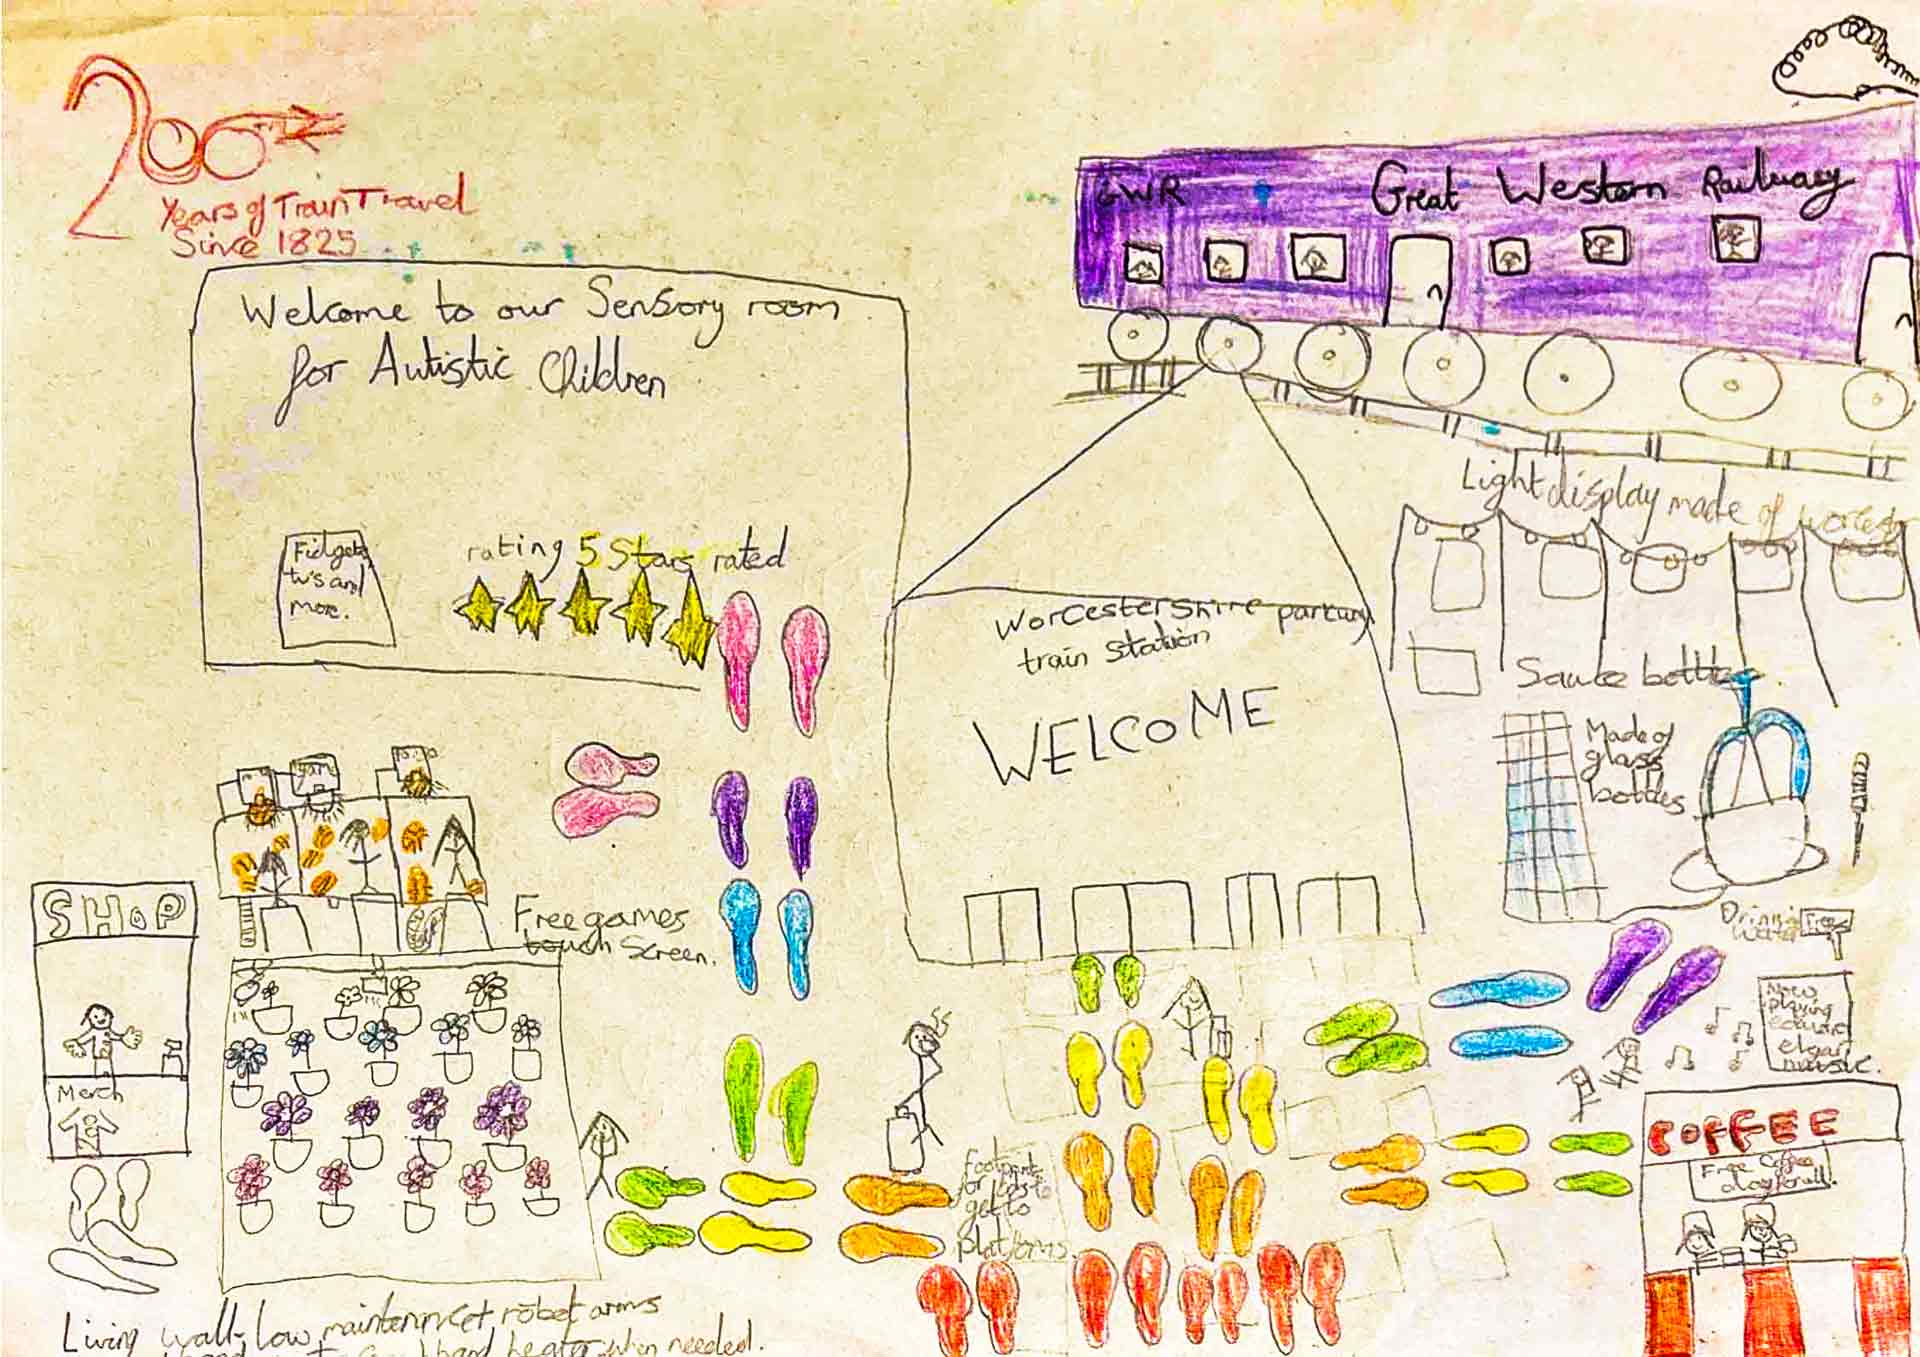 200
Years of Train Travel
Since 1825
GWR
Great Western Railway
Welcome to our Sensory room
for Autistic Children
Fidgets
tv's and
more.
rating 5 Stars rated
Light display made of
Sauce bottle
Worcestershire parkway
train station
WELCOME
Made of
glass
bottles
Drinking
Water
Free
SHOP
Merch
Free games
touch screen.
Now
playing
edward
elgar
music.
COFFEE
Free Coffee
all day for all!
Footprints
for kids to
get to
platforms.
Living wall - low robot arms
hand heater when needed.